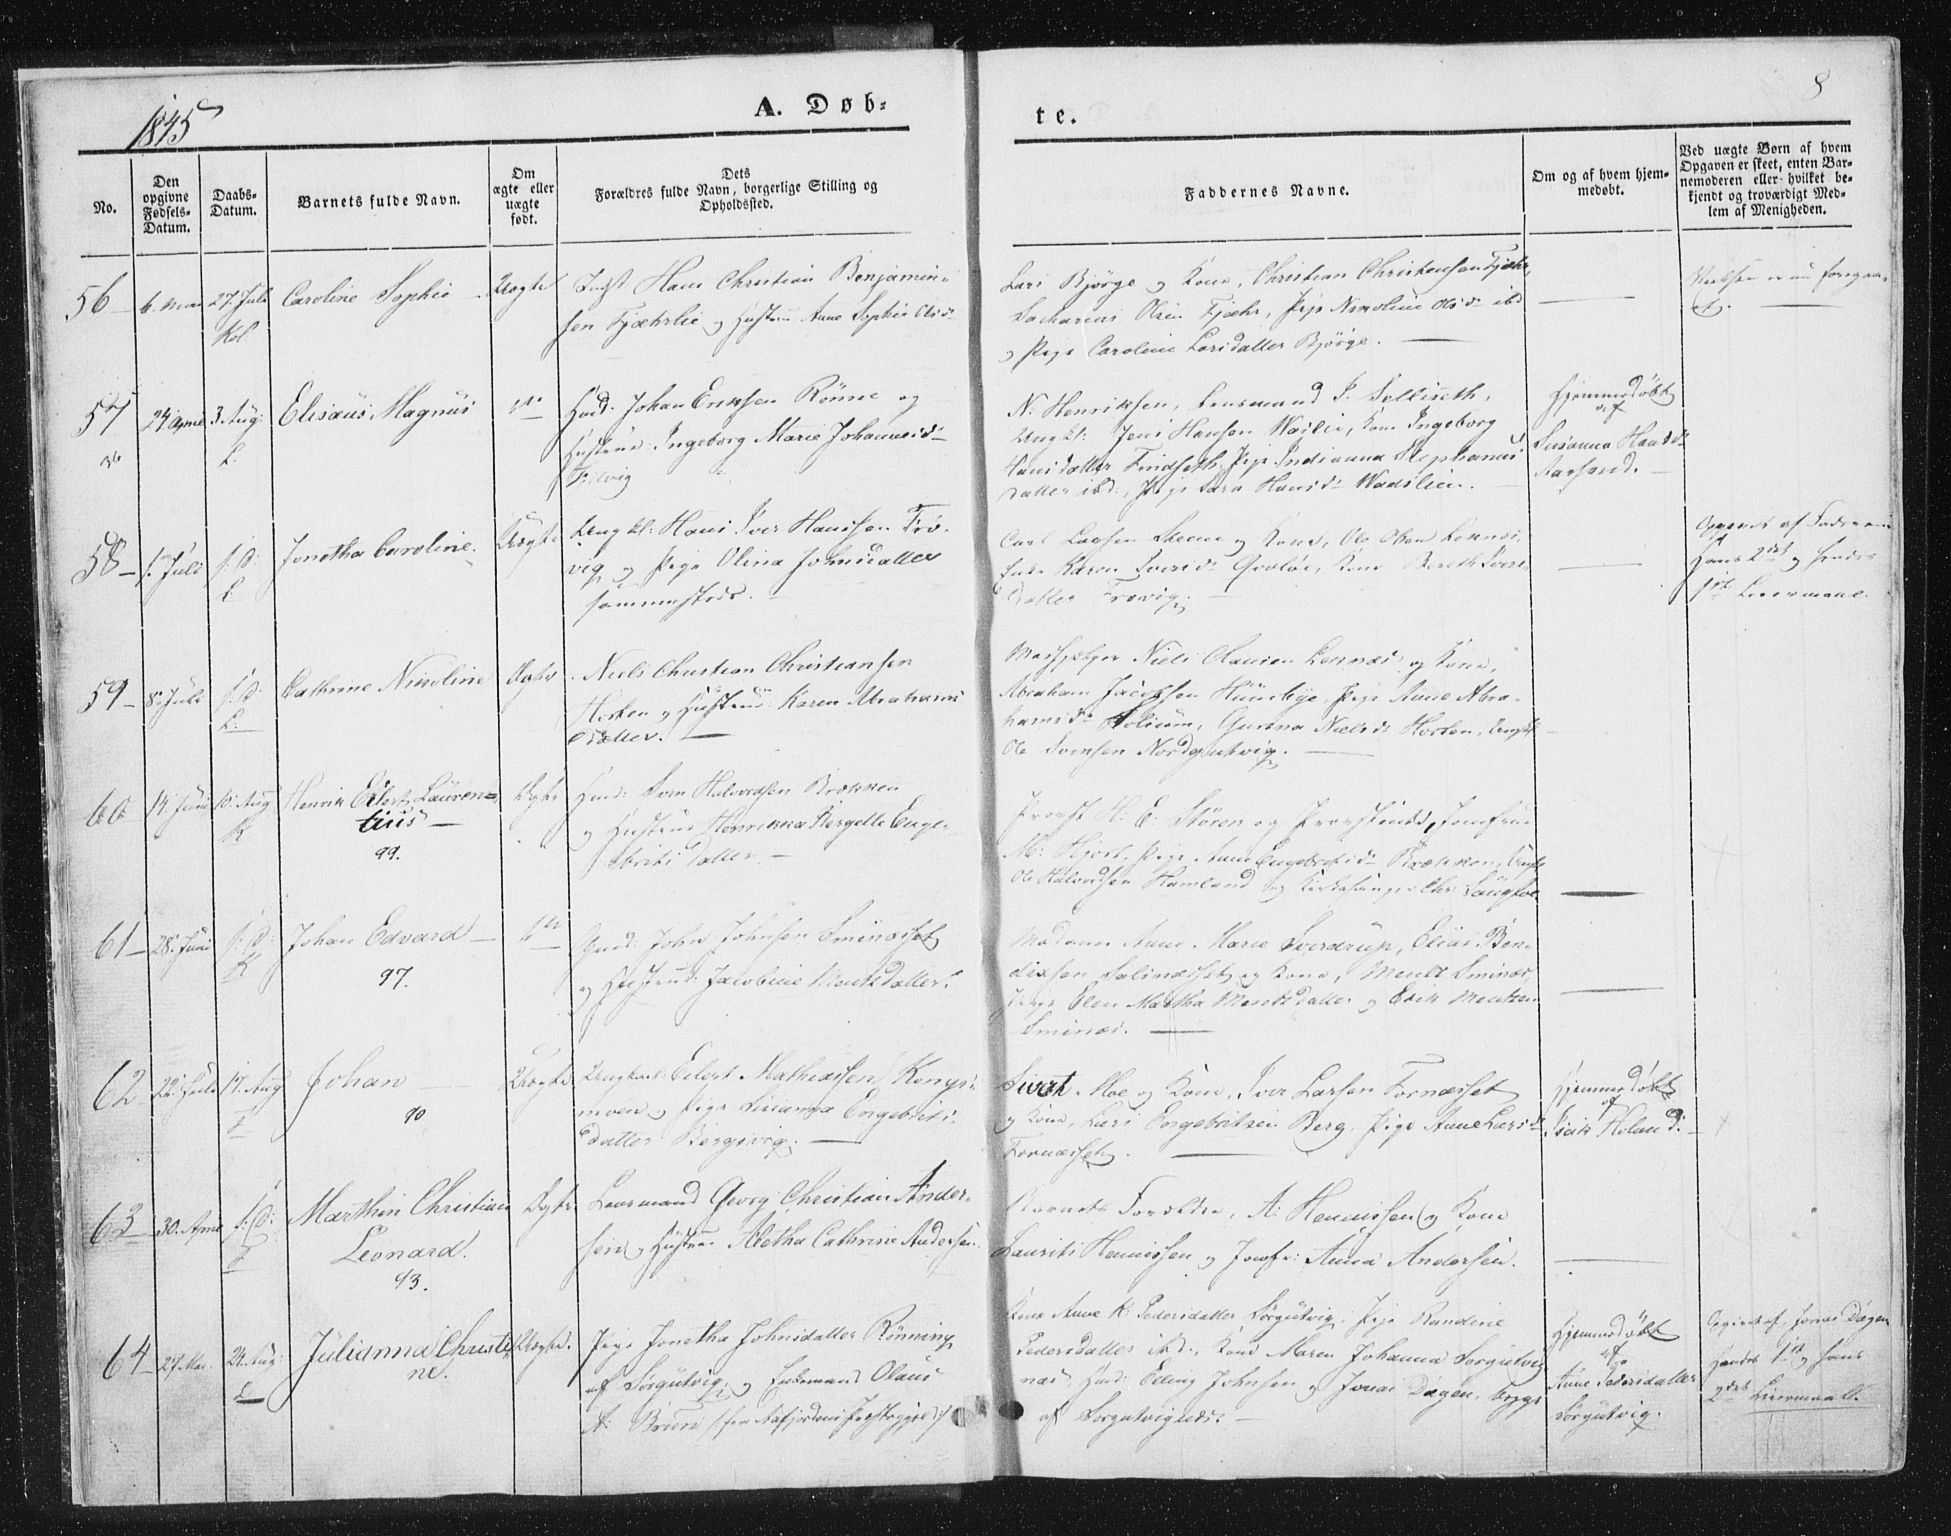 1845
A. Døb-
te.
8
No.
Den opgivne Fødsels-Datum.
Daabs-Datum.
Barnets fulde Navn.
Om ægte eller uægte født.
Dets Forældres fulde Navn, borgerlige Stilling og Opholdssted.
Faddernes Navne.
Om og af hvem hjemmedøbt.
Ved uægte Børn af hvem Opgaven er skeet, enten Barnemoderen eller hvilket bekjendt og troværdigt Medlem af Menigheden.
56
6. Mai
27. Juli
Kol
Caroline Sophie
Uægte
Hans Christian Benjamin-
sen Fjæhrlie og Hustru Anne Sophie Olsd
Lars Bjørge og Kone, Christian Christensen Fjæhr,
Zacharias Olsen Fjæhr, Pige Nicoline Olsd ibd
og Pige Caroline Larsdatter Bjørge.
57
24 April
3 Aug:
L.
Elisæus Magnus
Huusmd: Johan Eriksen Rönne og
Hustrue Ingeborg Marie Johannesd
N: Henriksen, Lensmand P. Selliseth,
Ungkl: Jens Hansen Waslie, Kone Ingeborg
Hansdatter Findseth, Pige Indianna Stephanus
datter ibd:, Pige Sara Hansd Wadslien.
Hjemmedøbt
af
Susanna Haasd
Aarsand.
58
1. Juli
s: D:
L
Jonetha Caroline.
Uægte
Ungkl: Hans Iver Hanssen Trö-
vig og Pige Olina Johnsdatter
sammesteds.
Carl Larsen Steene og Kone, Ole Olsen Lennes,
Enke Karen Iversd Qvaløe, Kone Bereth Ivers
datter Trøvig.
Opgivet af Faderen
Hans 2det og hendes
1ste Leiermaal.
59
8. Juli
s: D:
L.
Cathrine Nicoline
Ægte
Niels Christian Christiansen
Horten og Hustrue Karen Abrahams
datter.
Niels Clausen Lennæs og Kone,
Abraham Jacobsen Hunnebye, Pige Anne Abra-
hamsd Solium, Gurina Nielsd Horten, Ungkl
Ole Svensen Nordgutvig.
60
14. Juni
10. Aug
K
Henrik Eilert Lauren=
tius
99.
Ægte
Huusmd: Sven Halvorsen Brækken
og Hustrue Henrikka Birgelle Enge-
britsdatter.
Provst H: E: Stören og Provstinde, Jomfrue
M: Hjort, Pige Anne Engebritsd Brækken, Ungkl
Ole Halvorsen Hamland og Kirkesanger Chr: Laugtve
61
28. Juni
s: D:
K
Johan Edvard
97.
Gmd: John Johnsen Sminesset
og Hustrue Jacobine Mentzdatter.
Madame Anne Marie Sverdrup, Elias Ben-
dixsen Salinæsset og Kone, Mentz Sminæs,
Pige Elen Martha Mentzdatter og Erik Mentzen
Sminæs.
62
22. Juli
17. Aug
F
Johan
90
Uægte
Ungkarl Eilert Mathiassen Kongs-
moen og Pige Susanna Engebrits-
datter Bergsvig.
Sivert Moe og Kone, Iver Larsen Fornæsset
og Kone, Lars Engebritsen Berg, Pige Anne Larsd
Fornæsset.
Hjemmedøbt
af
Isak Holand.
63
30. April
s: D:
F
Marthin Christian
Leonard.
93.
Ægte
Lensmand Georg Christian Ander-
sen og Hustrue Aletha Cathrine Andersen
Barnets Forældre, A: Hennissen og Kone
Laurits Hennissen og Jomfr: Anna Andersen.
64
27. Mai
24. Aug:
L
Julianna Christi
ne.
Uægte.
Pige Jonetha Johnsdatter Rönning
af Sørgutvig og Enkemand Olaus
A: Bruun (fra Aafjordens Præstegjeld)
Kone Anne K: Pedersdatter Sørgutvig, Pige Randine
Pedersdatter ibd:, Kone Maren Johanna Sørgutvig
næs, Huusmd: Elling Johnsen og Jonas Dagen, begge
af Sørgutvignæs.
Hjemmedøbt
af
Anne Pedersdatter
Sørgutvig.
Opgivet af Jonas Dagen
Hendes 1ste og hans
2det Leiermaal.